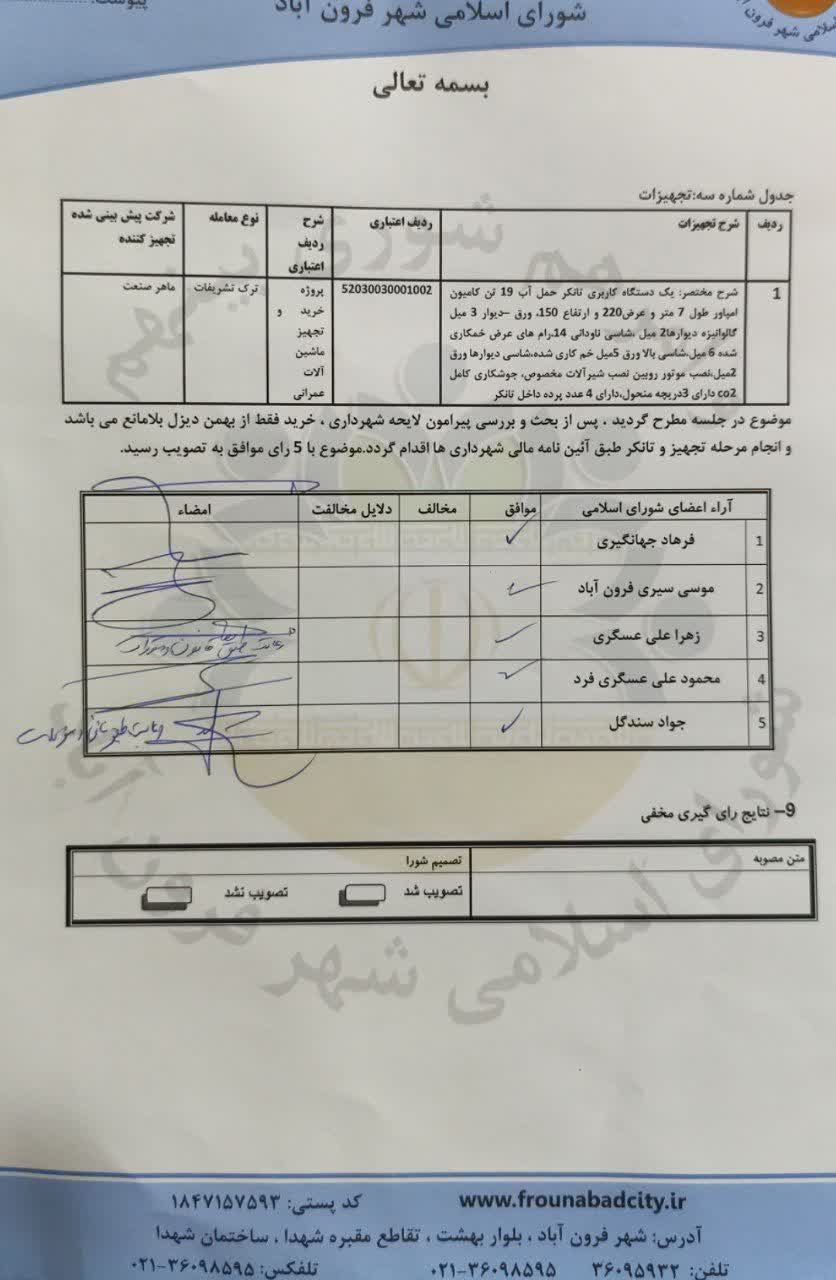 پیوست:
شورای اسلامی شهر فرون آباد
اسلامی شهر فرون
بسمه تعالی
جدول شماره سه:تجهیزات
ردیف شرح تجهیزات ردیف اعتباری شرح ردیف اعتباری نوع معامله شرکت پیش بینی شده تجهیز کننده
1 شرح مختصر: یک دستگاه کاربری تانکر حمل آب 19 تن کامیون
امپاور طول 7 متر و عرض220 و ارتفاع 150، ورق –دیوار 3 میل
گالوانیزه دیوارها2 میل ،شاسی ناودانی 14،رام های عرض خمکاری
شده 6 میل،شاسی بالا ورق 5میل خم کاری شده،شاسی دیوارها ورق
2میل،نصب موتور روبین نصب شیرآلات مخصوص، جوشکاری کامل
co2 دارای 3دریچه منحول،دارای 4 عدد پرده داخل تانکر
52030030001002
پروژه
خرید و
تجهیز
ماشین
آلات
عمرانی
ترک تشریفات
ماهر صنعت
موضوع در جلسه مطرح گردید . پس از بحث و بررسی پیرامون لایحه شهرداری ، خرید فقط از بهمن دیزل بلامانع می باشد
و انجام مرحله تجهیز و تانکر طبق آئین نامه مالی شهرداری ها اقدام گردد.موضوع با 5 رای موافق به تصویب رسید.
آراء اعضای شورای اسلامی موافق مخالف دلایل مخالفت امضاء
1 فرهاد جهانگیری
2 موسی سیری فرون آباد
3 زهرا علی عسگری
4 محمود علی عسگری فرد
5 جواد سندگل
9– نتایج رای گیری مخفی
متن مصوبه تصمیم شورا
تصویب شد تصویب نشد
شورای اسلامی شهر فرون آباد
www.frounabadcity.ir کد پستی: ۱۸۴۷۱۵۷۵۹۳
آدرس: شهر فرون آباد ، بلوار بهشت ، تقاطع مقبره شهدا ، ساختمان شهدا
تلفن: ۳۶۰۹۵۹۳۲ ۰۲۱-۳۶۰۹۸۵۹۵ تلفکس: ۰۲۱-۳۶۰۹۸۵۹۵